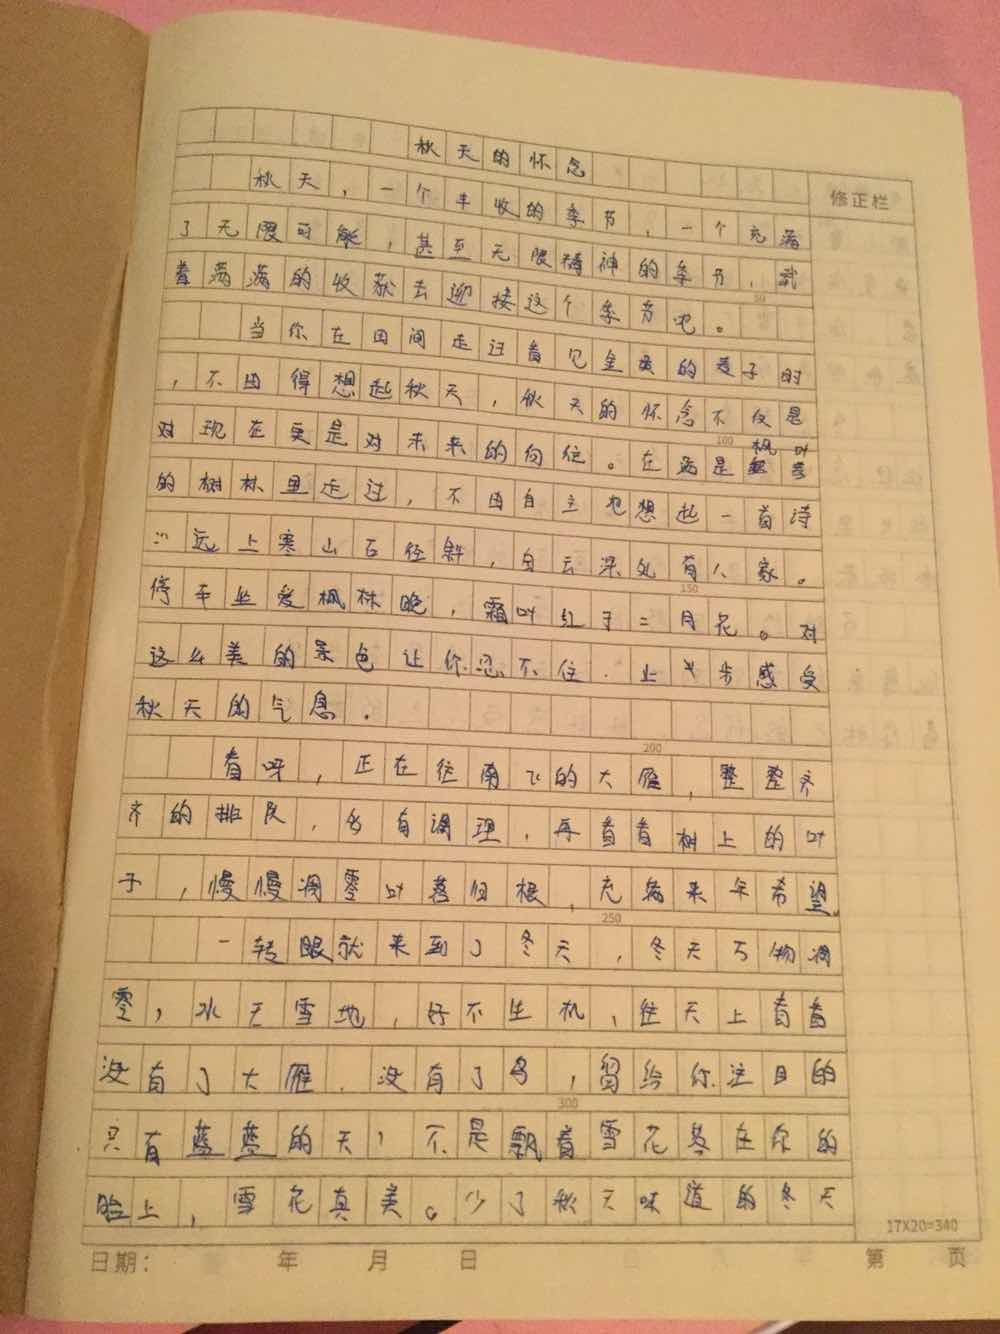 秋天的怀念
修正栏
秋天，一个丰收的季节，一个充满
了无限可能，甚至无限精神的季节，武
着满满的收获去迎接这个季节吧。
50
当你在田间走过看见金黄的麦子时
，不由得想起秋天，秋天的怀念不仅是
对现在更是对未来的向往。在满是枫叶
100
的树林里走过，不由自主地想起一首诗
：远上寒山石径斜，白云深处有人家。
停车坐爱枫林晚，霜叶红于二月花。对
150
这么美的景色让你忍不住.止步感受
秋天的气息.
看呀，正在往南飞的大雁，整整齐
200
齐的排队，多有调理，再看看树上的叶
子，慢慢凋零叶落归根，充满来年希望。
一转眼就来到了冬天，冬天万物凋
250
零，冰天雪地，好不生机，往天上看看
没有了大雁.没有了鸟，留给你注目的
只有蓝蓝的天，不是飘着雪花落在你的
300
脸上，雪花真美。少了秋天味道的冬天
17X20=340
日期： 年 月 日 第 页